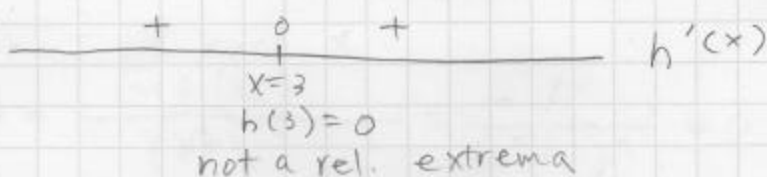 + 0 + h'(x)
x=3
h(3)=0
not a rel. extrema